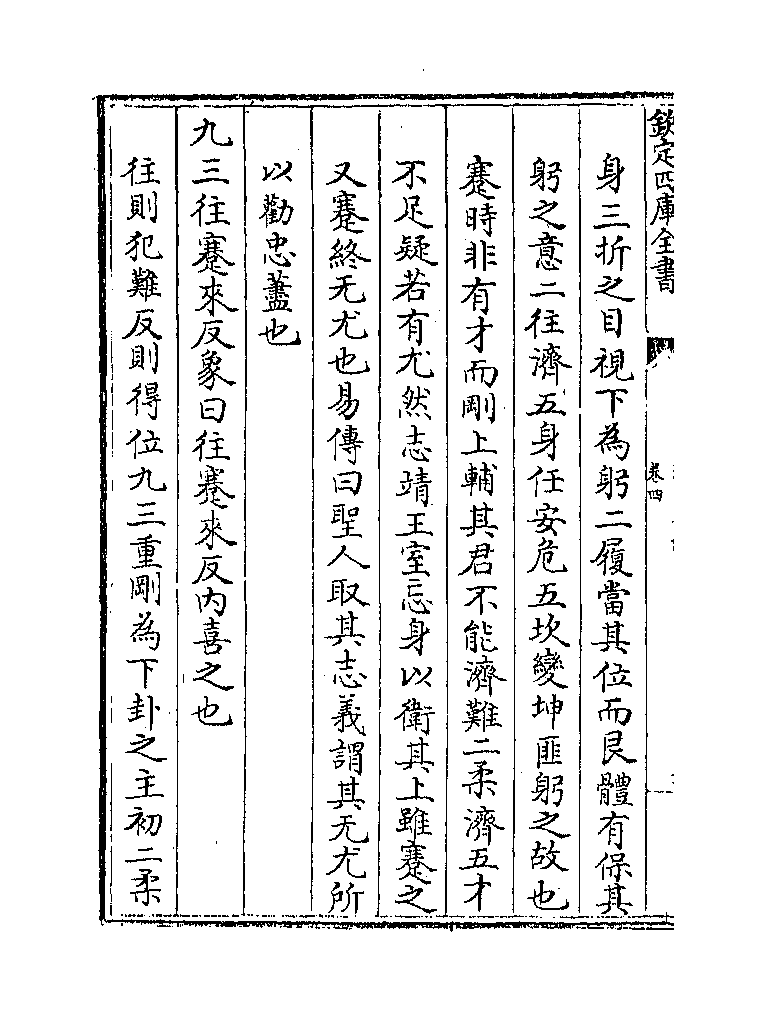 欽定四庫全書
卷四
身三折之目視下為躬二履當其位而艮體有保其
躬之意二往濟五身任安危五坎變坤匪躬之故也
蹇時非有才而剛上輔其君不能濟難二柔濟五才
不足疑若有尤然志靖王室忘身以衛其上雖蹇之
又蹇終无尤也易傳曰聖人取其志義謂其无尤所
以勸忠藎也
九三往蹇來反象曰往蹇來反内喜之也
往則犯難反則得位九三重剛為下卦之主初二柔